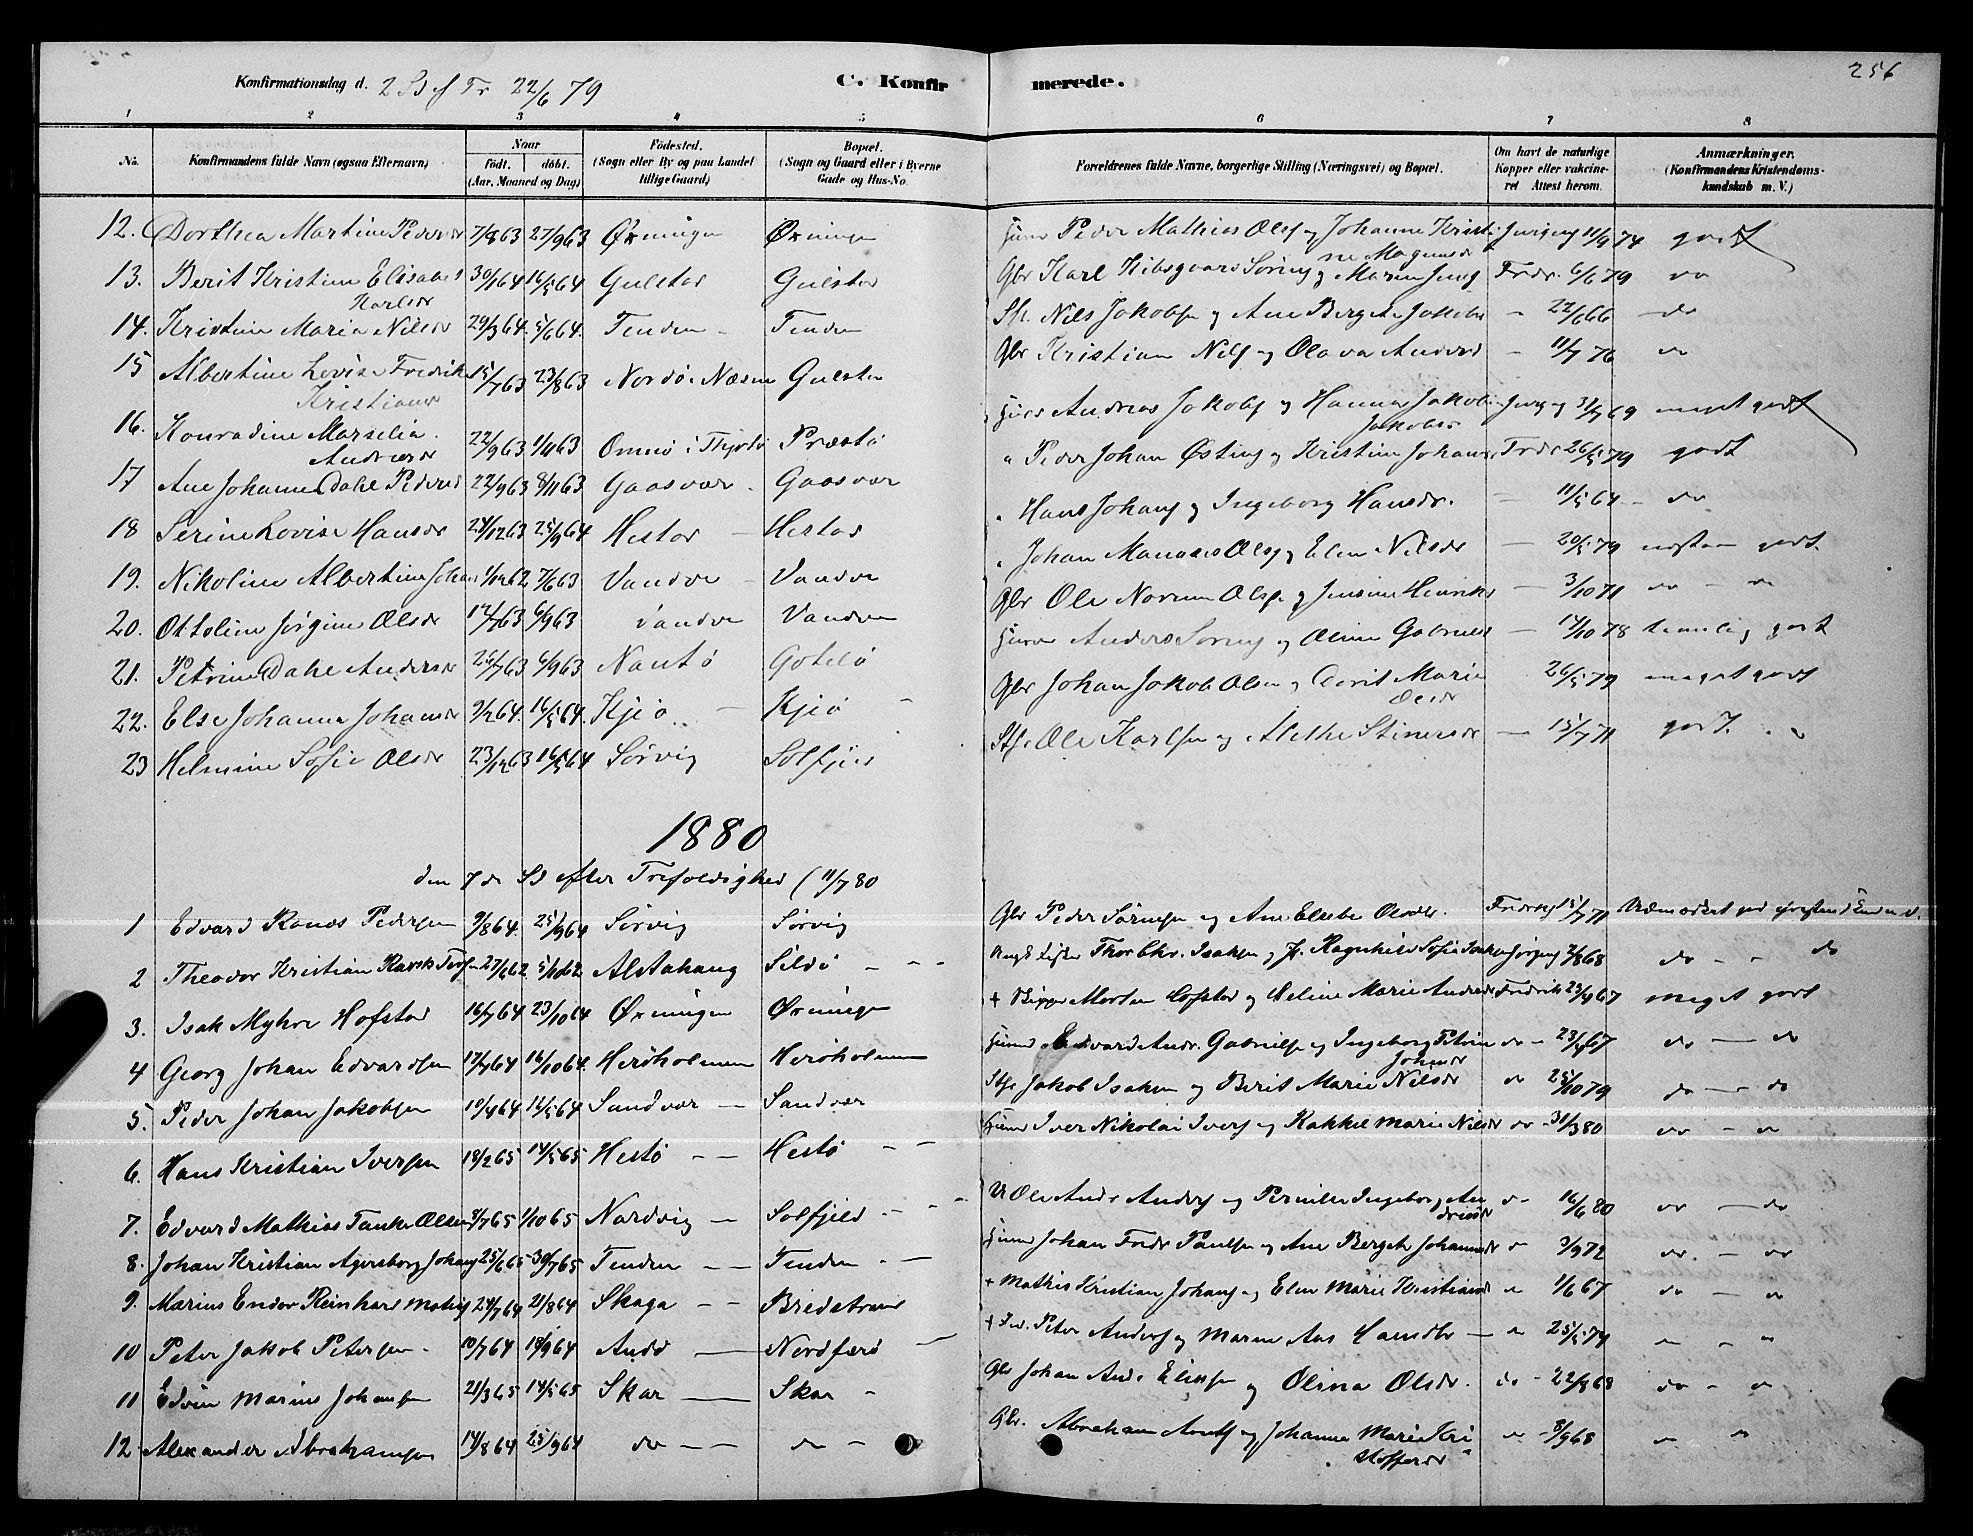 Konfirmationsdag d. 2 S ef Tr 22/6 79
C. Konfirmerede.
256
1 2 3 4 5 6 7 8
No.
Konfirmandens fulde Navn (ogsaa Efternavn)
Naar
født. døbt.
(Aar, Maaned og Dag)
Fødested.
(Sogn eller By og paa Landet tillige Gaard)
Bopæl.
(Sogn og Gaard eller i Byerne Gade og Hus-No.
Forældrenes fulde Navne, borgerlige Stilling (Næringsvei) og Bopæl.
Om havt de naturlige Kopper eller vakcineret Attest herom.
Anmærkninger.
(Konfirmandens Kristendomskundskab m. V.)
12. Dorthea Martine Pedersdr 7/8 63 27/9 63 Øxningen Øxningen
Peder Mathias Ols og Johanne Kristine Magnusdr 11/9 74 godt
13. Berit Kristine Elisabet Karlsdr 30/1 64 16/5 64 Gulstad Gulstad
Gbr Karl Hibsgaard Søring og Maren Jens Fredr. 6/6 79 do
14. Kristine Maria Nilsdr 29/3 64. 5/6 64. Tenden – Tenden
St. Nils Jakobsen og Ane Bergete Jakobs – 22/6 66 – do
15 Albertine Lovise Fredrikke Kristiansdr 15/7 63 23/8 63 Nordø i Næsne Gulstad
Gbr Kristian Nils og Olava Andersd – 11/7 76 do
16. Konradine Marselia Andreasdr 22/9 63 1/11 63 Omnø i Thjøtø Præstø
Andreas Jakobs og Hanna Jakobine Jakobsdr 31/7 69 meget godt
17 Ane Johanne Dahl Pedersd 22/9 63 8/11 63 Gaasvær – Gaasvær
" Peder Johan Østing og Kristine Johans Fredr 26/5 79 godt
18 Serine Lovise Hansdr 24/12 63 25/9 64 Hestad – Hestad
" Hans Johans og Ingeborg Hansdr. – 11/5 64 – do
19. Nikoline Albertine Johans 1/12 62 7/6 63 Vandve – Vandve
" Johan Mannses Ols og Elen Nilsdr – 20/5 79 næsten godt.
20. Ottoline Jørgine Olsdr 14/7 63 6/9 63 Vandve Vandve
Gbr Ole Norum Ols og Jensine Henriks – 3/10 71 do – do
21. Petrine Dahl Andersdr 26/7 63 6/9 63 Nautø Gotelø
Anders Søring og Oline Gabriels – 14/10 78 temmelig godt
22. Else Johanna Johansdr 9/2 64. 16/5 64. Kjeiø – Kjeiø –
Gbr Johan Jakob Olsen og Berit Marie Olsdr 26/5 79 meget godt
23 Helmine Sofie Olsdr 23/12 63 16/5 64 Sørvig Solfjeld
Stf. Ole Karlsen og Alethe Steinersdr – 15/7 71 godt.
1880
den 7de S efter Trefoldighed (11/7 80
1 Edvard Ranes Pedersen 9/8 64. 25/9 64 Sørvig Sørvig
Gbr Peder Sørensen og Ane Elsebe Olsdtr. Fredriks 15/7 71
2 Theodor Kristian Ravik 27/6 62 5/10 62 Alstahaug Seldø – –
Thor Chr. Isaksen og Ragnhild Sofie Isaks Jørgens 2/8 68 do – – do
3. Isak Myhre Hofstad 16/7 64 23/10 64 Øxningen Øxningen
+ Skipper Morten Hofstad og Helene Marie Anders Fredrik 23/4 67 meget godt
4 Georg Johan Edvardsen 17/7 64 16/10 64. Herøholmen Herøholmen
Edvard Andr. Gabrielsen og Ingeborg Petrine Johansdr do – 23/4 67 do – do
5. Peder Johan Jakobsen 10/4 64 16/5 64 Sandvær – Sandvær
Stf Jakob Isaksen og Berit Marie Nilsdr do 25/10 79 do – do
6. Hans Kristian Iversen 18/2 65 14/5 65 Hestø – – Hestø – –
Iver Nikolai Ivers og Rakkel Marie Nilsdr do – 31/3 80 do – do
7. Edvard Mathias Tanke Olsen 3/7 65 1/10 65 Nordvig – Solfjeld – –
Ole Andr Anders og Pernille Ingeborg Andreasdr do – 16/6 80 do – do
8. Johan Kristian Agersborg Johans 25/6 65 30/7 65 Tenden – – Tenden – –
Johan Fredr Paulsen og Ane Bergete Johannesdr do 3/9 72 do. – do
9. Marius Endor Reinhard Mathis 24/7 64 21/8 64 Skaga – – Bredstrand
+ Mathis Kristian Johans og Elen Marie Kristiansd do 1/6 67 do – do
10 Peter Jakob Petersen. 10/7 64 18/9 64 Andø – Nordfærø –
+ Peter Anders og Maren Aas Hansdtr – do 25/5 79 do do
11 Edvin Marius Johansen 21/3 65 14/5 65 Skar – Skar –
Gbr Johan Andr Eliesen og Olina Olsdr. do – 22/8 68 do – do
12. Alexander Abrahamsen 14/8 64 25/9 64 do – – do –
Gbr. Abraham Arnts og Johanna Marie Kristoffersdr do – 8/9 68 do do